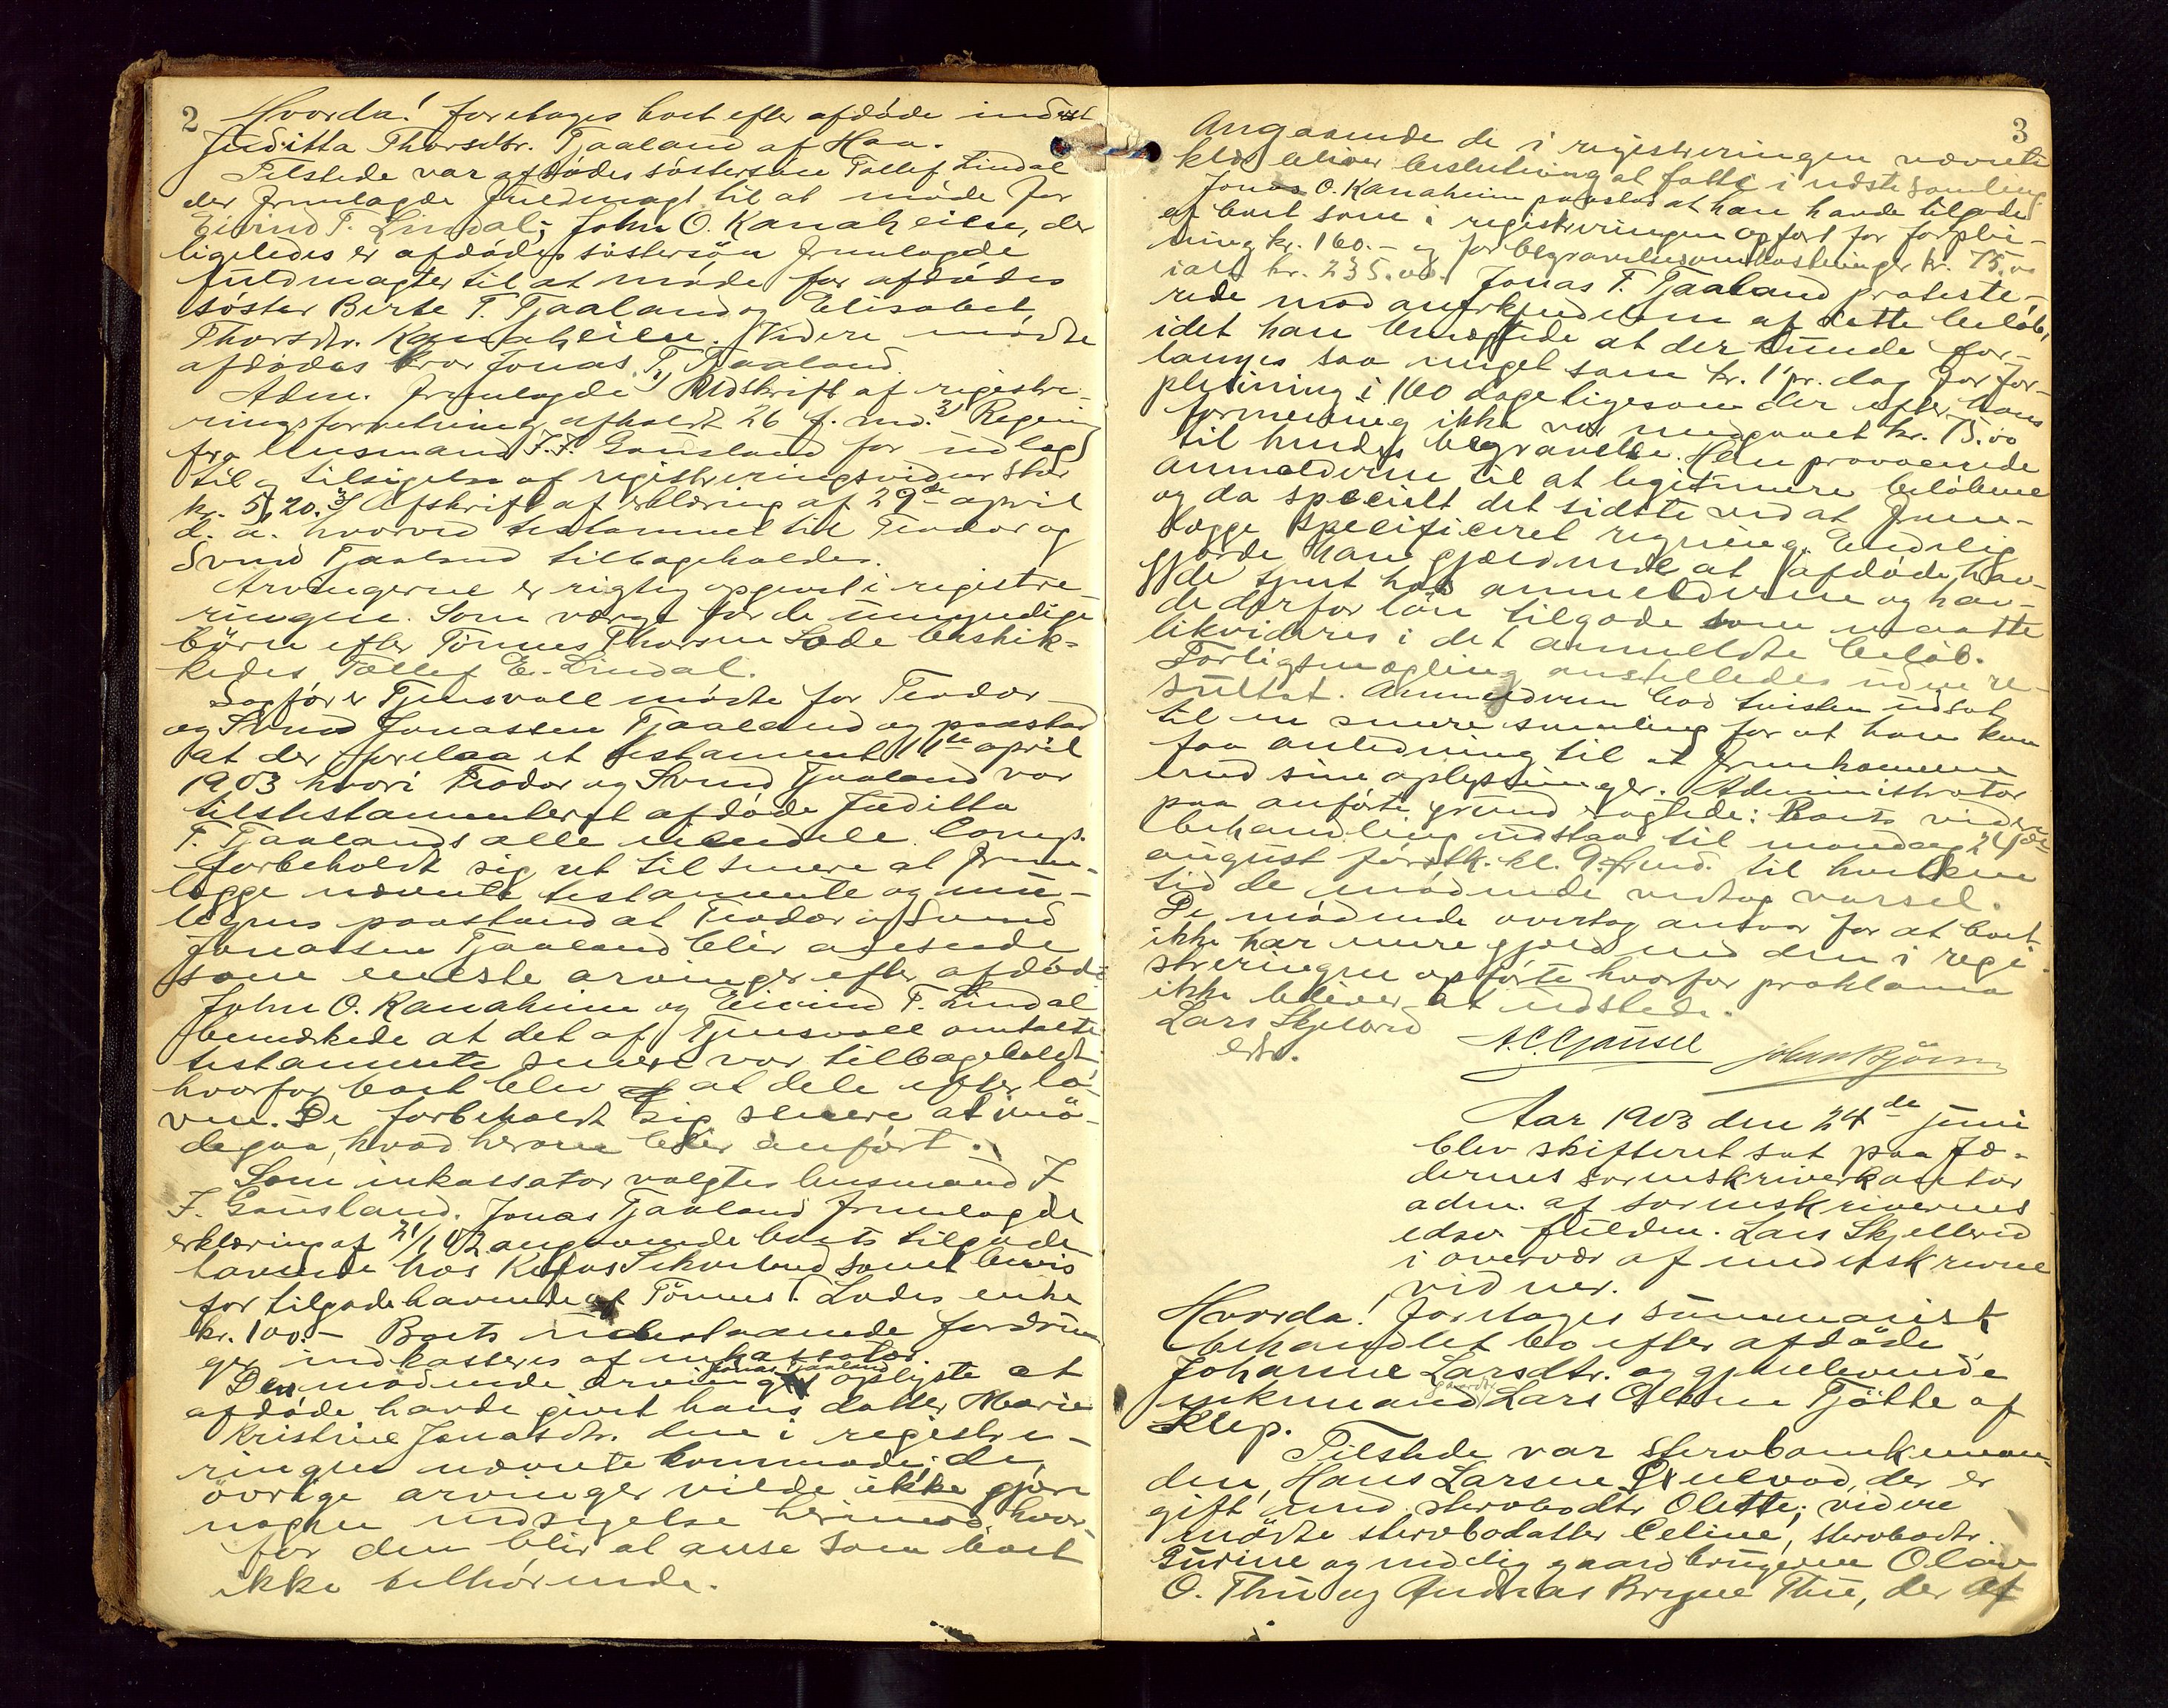 2
Hvorda! foretages boet efter afdøde inderst
Juditta Thorsdtr. Tjaaland af Haa.
Tilstede var afdødes søstersøn Tollef Lindal
der fremlagde fuldmagt til at møde for
Eivind T. Lindal; John O. Kanaheien, der
ligeledes er afdødes søstersøn fremlagde
fuldmagter til at møde for afdødes
søster Berte T. Tjaaland og Elisabet
Thorsdtr. Kanaheien. Videre mødte
afdødes bror Jonas T. Tjaaland.
Adm. fremlagde 1) Udskrift af registre-
ringsforretning afholdt 26 f. md. 2) Regning
fra lensmand J. F. Gausland for udlæg
til og tilsigelse af registreringsvidner stor
kr. 5,20. 3) Afskrift af erklæring af 29de april
d. a. hvorved testamnet til Teodor og
Svend Tjaaland tilbageholdes.
Arvingerne er rigtig opgivet i registre-
ringen. Som værge for de umyndige
børn efter Tønnes Thorsen Lode beskik-
kedes Tollef E. Lindal.
Sagfører Tjensvoll mødte for Teodor
og Svend Jonassen Tjaaland og paastod
at der forelaa et testament 11te april
1903 hvori Teodor og Svend Tjaaland var
tilstestamenteret afdøde Juditta
T. Tjaalands alle eiendele. Comp.
forbeholdt sig ret til senere at frem-
lægge nævnte testamente og ned-
legges paastand at Teodor og Svend
Jonassen Tjaaland blir at ansende
som eneste arvinger efter afdøde
John O. Kanaheien og Eivind T. Lindal
bemærkede at det af Tjensvoll omtalte
testamente senere var tilbageholdt
hvorfor boet blev at dele efter lo-
ven. De forbeholdt sig senere at imø-
degaa, hvad herom blir anført.
Som inkassator valgtes lensmand J.
F. Gausland. Jonas Tjaaland fremlagde
erklæring af 21/1 02 angaaende boets tilgode-
havende hos Rasmus Sikveland samt bevis
for tilgodehavende af Tønnes T. Lodes enke
kr. 100.- Boets udestaaende fordrin-
ger indkasseres af inkassator.
Den mødende arving Jonas Tjaaland oplyste at
afdøde havde givet hans datter Marie
Kristine Jonasdtr. den i registre-
ringen nævnte kommode; de
øvrige arvinger vilde ikke gjøre
nogen indsigelse herimod, hvor-
for den blir at anse som boet
ikke tilhørende.
3
Angaaende de i registreringen nævnte
klær bliver beslutning at fatte i næste samling
Jonas O. Kanaheim paastod at han havde tilgode
af boet som i registreringen opført for forplei-
ning kr. 160.- og for begravelsesomkostninger kr. 75.00
ialt kr. 235.00. Jonas T. Tjaaland proteste-
rede mod anerkjendelsen af dette beløb,
idet han benægtede at der kunde for-
langes saa meget som kr. 1 pr. dag for for-
pleining i 160 dage ligesom der efter hans
formening ikke var medgaaet kr. 75.00
til hendes begravelse. Han provocerede
anmelderne til at legitimere beløbene
og da specielt det sidste ved at frem-
lægge specificeret regning. Endelig
gjorde han gjældende at afdøde hav-
de tjent hos anmelderne og hav-
de derfor løn tilgode som maatte
likvideres i det anmeldte beløb.
Forligsmægling anstilledes uden re-
sultat. Anmelderen bad tvisten udsat
til en senere samling for at han kan
faa anledning til at fremkomme
med sine oplysninger. Administrator
paa anførte grund eragtede: Boets videre
behandling udstaar til mandag 24de
august førstk. kl. 9 fmd. til hvilken
tid de mødende vedtog varsel.
De mødende overtog ansvar for at boet
ikke har mere gjæld end den i regi-
streringen opførte hvorfor proklama
ikke bliver at udstede.
Lars Skjelbred
edsv.
A. C. Gausel Johan Bjørn
Aar 1903 den 24de juni
blev skifteret sat paa Jæ-
derens sorenskriverkontor
adm. af sorenskriverens
edsv. fuldm. Lars Skjelbred
i overvær af underskrevne
vidner.
Hvorda! foretages summarisk
behandlet bo efter afdøde
Johanne Larsdtr. og gjenlevende
enkemand gaardbr. Lars Olsen Tjøtte af
Klep.
Tilstede var stervboenkeman-
den, Hans Larsen, der er
gift med stervbodtr. Olette; videre
mødte stervbodatter Celine, stervbodtr.
Gurine og endelig gaardbrugerne Olav
O. Thu og Andreas Bryne Thu, der af